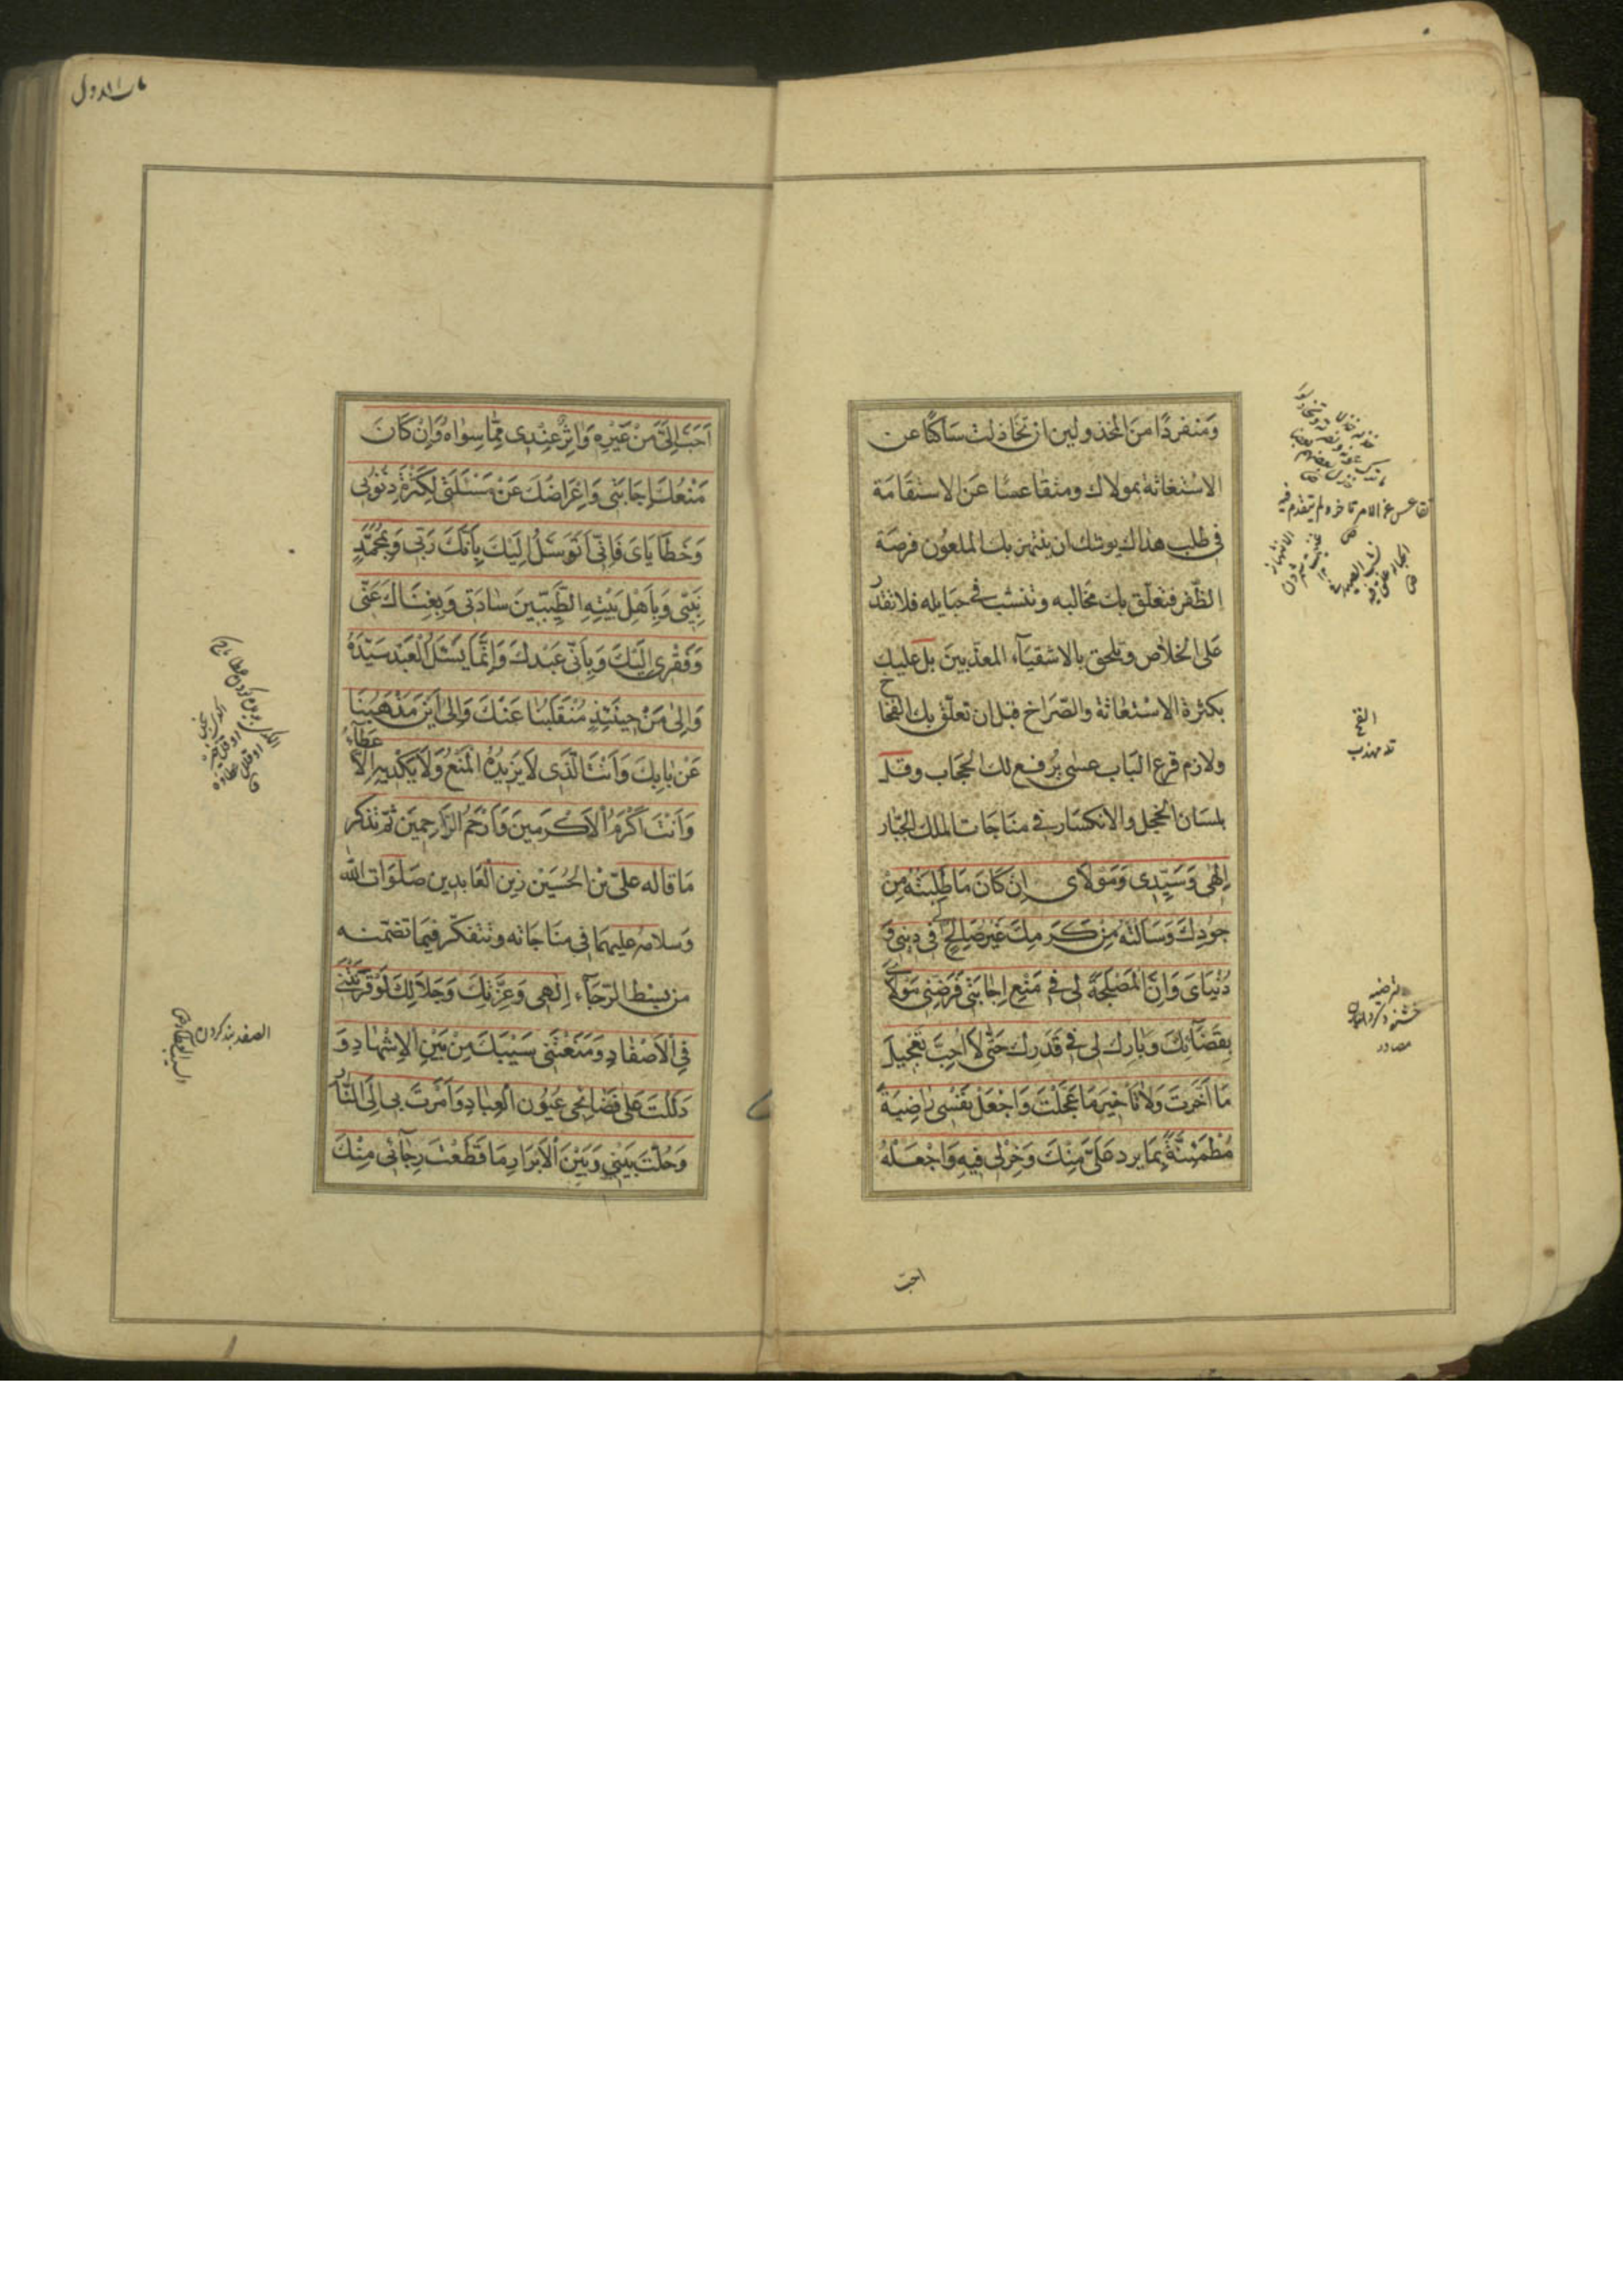 وَمنفردًا منَ المخذولين ان تخاذلت ساكتًا عن
الاسْتغاثة بمولاك ومتقاعسًا عن الاستقامَة
في طلب هداك يوشك ان ينتهز بك الملعون فرصَة
الظّفر فتعلّق بك مخالبه وتنشب في حبايله فلا تقدر
على الخلاص وتلحق بالاشقيآء المعذّبين بل عليك
بكثرة الاسْتغاثة والصّراخ قبل ان تعلّق بك الفخاخ
ولازم قرع الباب عسى يُرفع لك الحجاب وقل
بلسان الخجل والانكسار في مناجات الملك الجبّار
اِلٰهى وَسَيِّدِى وَمَوْلَاى اِنْ كَانَ مَا طَلِبْتُه مِنْ
جُودِكَ وَسَاَلْتُه مِنْ كَرَمِكَ غَيْرَ صَالِحٍ لى فى دِينى وَ
دُنْيَاىَ وَاَنَّ الْمَصْلَحَةَ لى فى مَنْعِ اِجَابَتى فَرَضِّنى مَوْلَاىَ
بِقَضَآئِكَ وَبَارِكْ لى فى قَدَرِكَ حَتّٰى لَا اُحِبَّ تَعْجِيلَ
مَا اَخَّرْتَ وَلَا تَأْخِيرَ مَا عَجَّلْتَ وَاجْعَلْ نَفْسى رَاضِيَةً
مُطْمَئِنَّةً بِمَا يرد عَلَىَّ مِنْكَ وَخِرْ لى فِيهِ وَاجْعَلْهُ
احبّ
تقاعس عن الامر تاخر ولم يتقدم فيه
الفخ
ترضيه
خشنود كردانيدن
مصادر
اَحَبَّ اِلَىَّ مِنْ غَيْرِهِ وَاٰثَرَ عِنْدِى مِمَّا سِوَاهُ وَاِنْ كَانَ
مَنْعُكَ اِجَابَتى وَاِعْرَاضُكَ عَنْ مَسْئَلَتى لِكَثْرَةِ ذُنُوبى
وَخَطَايَاىَ فَاِنّى اَتَوَسَّلُ اِلَيْكَ بِاَنَّكَ رَبّى وَبِمُحَمَّدٍ
نَبِيّى وَبِاَهْلِ بَيْتِهِ الطَّيِّبِينَ سَادَتى وَبِغِنَاكَ عَنّى
وَفَقْرِى اِلَيْكَ وَبِاَنّى عَبْدُكَ وَاِنَّمَا يَسْئَلُ الْعَبْدُ سَيِّدَهُ
وَاِلىٰ مَنْ حِينَئِذٍ مُنْقَلَبُنَا عَنْكَ وَاِلىٰ اَيْنَ مَذْهَبُنَا
عَنْ بَابِكَ وَاَنْتَ الَّذِى لَا يَزِيدُهُ الْمَنْعُ وَلَا يُكْدِيهِ الْاِعْطَآءُ
وَاَنْتَ اَكْرَمُ الْاَكْرَمِينَ وَاَرْحَمُ الرَّاحِمِينَ ثم تذكر
مَا قاله علىّ بْن الحُسَيْن زين العَابدين صَلَوَات اللّٰه
وَسلامه عليهما فى مناجاته وتتفكّر فيمَا تضمّنه
من بسْط الرّجآء اِلٰهى وَعِزَّتِكَ وَجَلَالِكَ لَوْ قَرَنْتَنى
فِى الْاَصْفَادِ وَمَنَعْتَنى سَيْبَكَ مِنْ بَيْنِ الْاِشْهَادِ وَ
دَلَلْتَ عَلىٰ فَضَائِحى عُيُونَ الْعِبَادِ وَاَمَرْتَ بى اِلَى النَّارِ
وَحُلْتَ بَيْنى وَبَيْنَ الْاَبْرَارِ مَا قَطَعْتُ رَجَآئى مِنْكَ
الصفد بند كردن